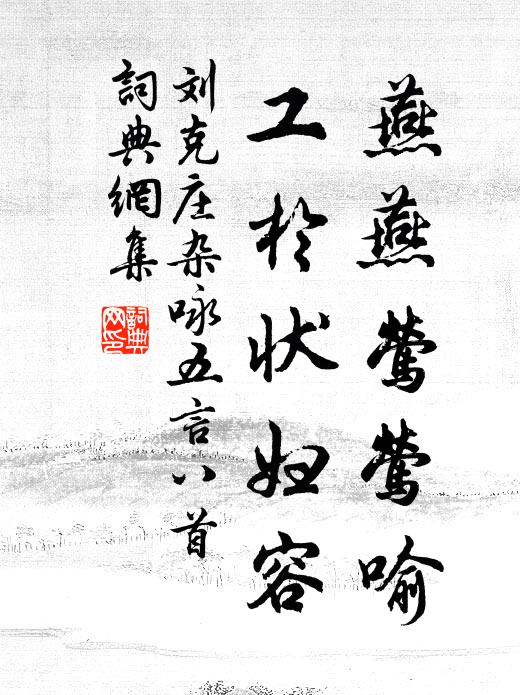 燕燕莺莺喻
工於状妇容
刘克庄杂咏五言八首
詞典網集
詞典
网印